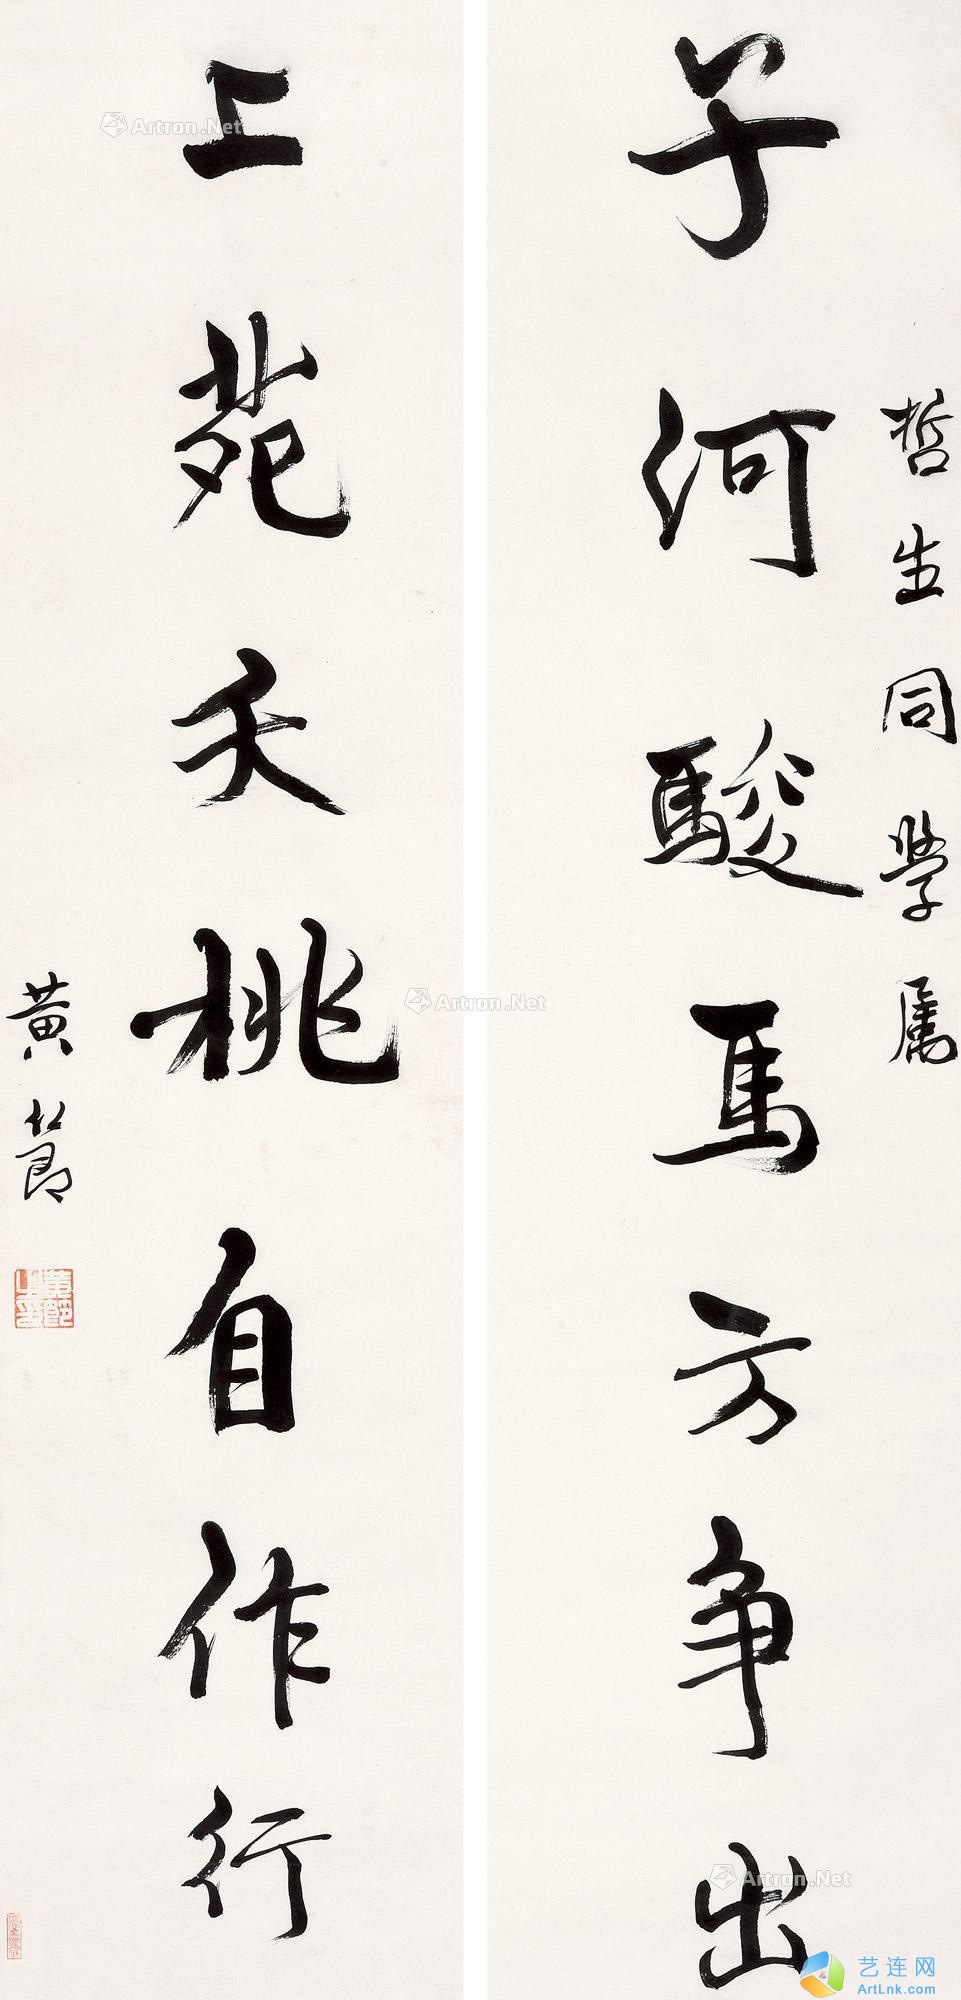 哲生同學属
子河駿馬方争出
上苑夭桃自作行
黄節
黄節之印
Artron.Net
Artron.Net
Artron.Net
艺连网
ArtLnk.com